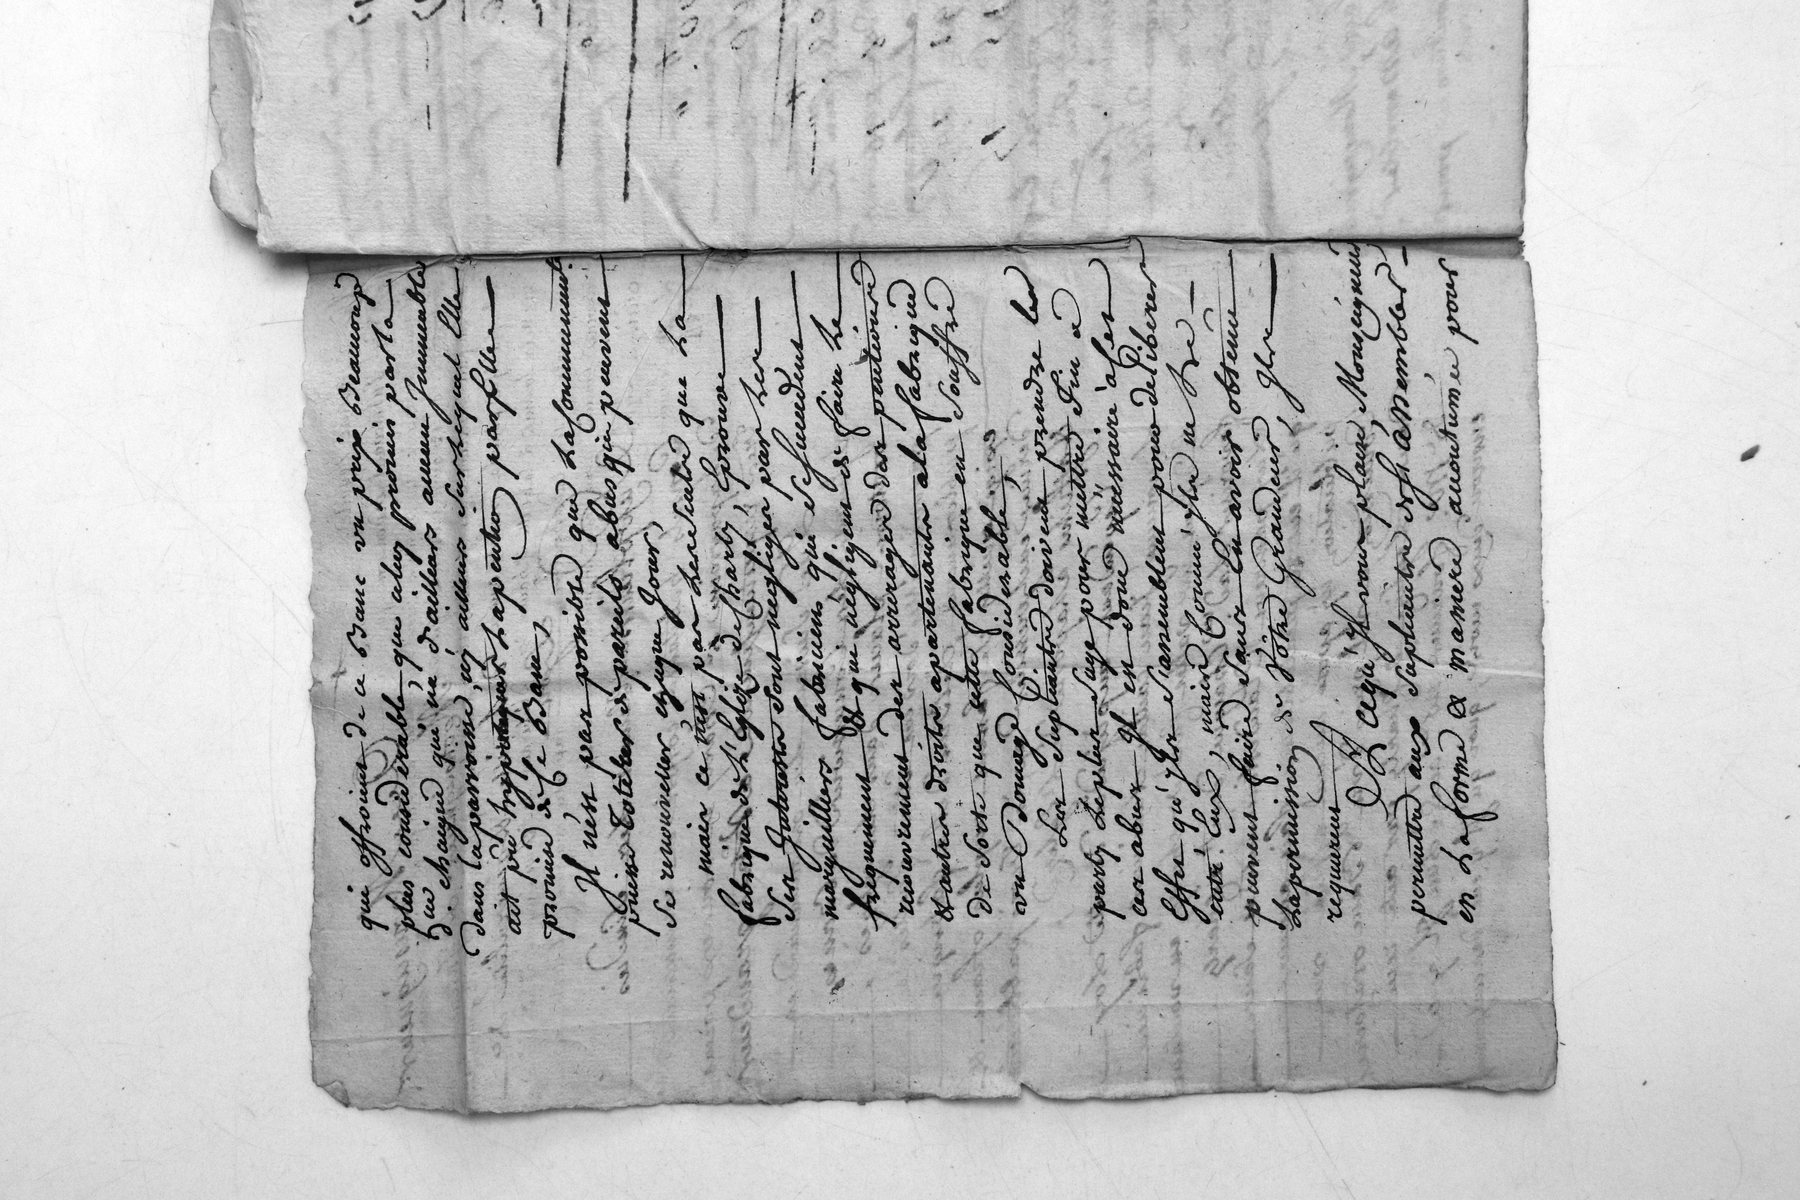 qui offroient de ce Banc un prix Beaucoup
plus considerable que celuy promis par la
De chaigne qui na d'ailleurs aucun Immeuble
dans la parroisse ny ailleurs sur lequel Elle
ait pû hypotequer La pention par Elle
promise de Ce Banc,
Il n'est pas possible que La Communauté
puisse tolerer de pareils abus qui peuvent
se renouveller chaque jour,
mais ce n'est pas La seule que La
fabrique de L'Eglise de Charly, Eprouve
Ses Interests sont negligés par Les
marguilliers fabriciens qui se succedent
frequemment & qui negligent de faire Le
recouvrement des arrerages des pentions
& autres droits apartenants a la fabrique
De Sorte que cette fabrique en souffre
un Domage Considerable,
Les Supliants doivent prendre Les
partis Le plus Sage pour mettre Fin a
ces abus Il est donc necessaire a Cet
Effet qu'ils s'assemblent pour deliberer
entre Eux, mais Comme Ils ne Le
peuvent faire sans En avoir obtenu
La permission de Vôtre Grandeur, Ils
requierent
A ce qu'il vous plaise Monseigneur
permettre aux Supliants de s'assembler
en La forme & maniere acoutumée pour